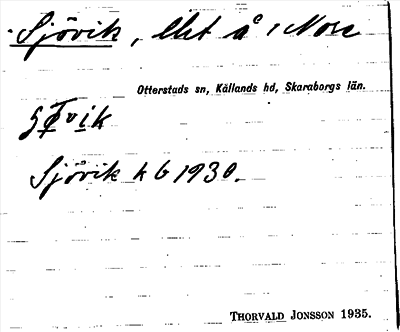 Sjövik, lht å Nore
Otterstads sn, Kållands hd, Skaraborgs län.
Sjövik kb 1930.
THORVALD JONSSON 1935.